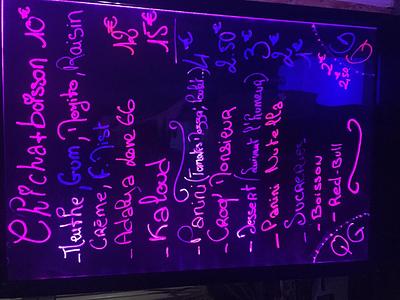 Chicha + boisson 10€
- Menthe, Gum, Mojito, Raisin
Crème, F.Mist
- Adalya Love 66 12€
- Kaloud 15€
- Panini (Tomate Mozza Poulet..) 4€
- Croq' Monsieur 2.50€
- Dessert (suivant l'humeur) 3€
- Panini Nutella 2€
- Sucreries
- Boisson 2€
- Red-Bull 2,50
QG